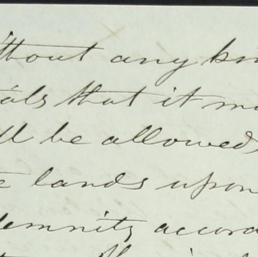 ithout any kn
als that it m
ll be allowed,
e lands upon
demnity accord